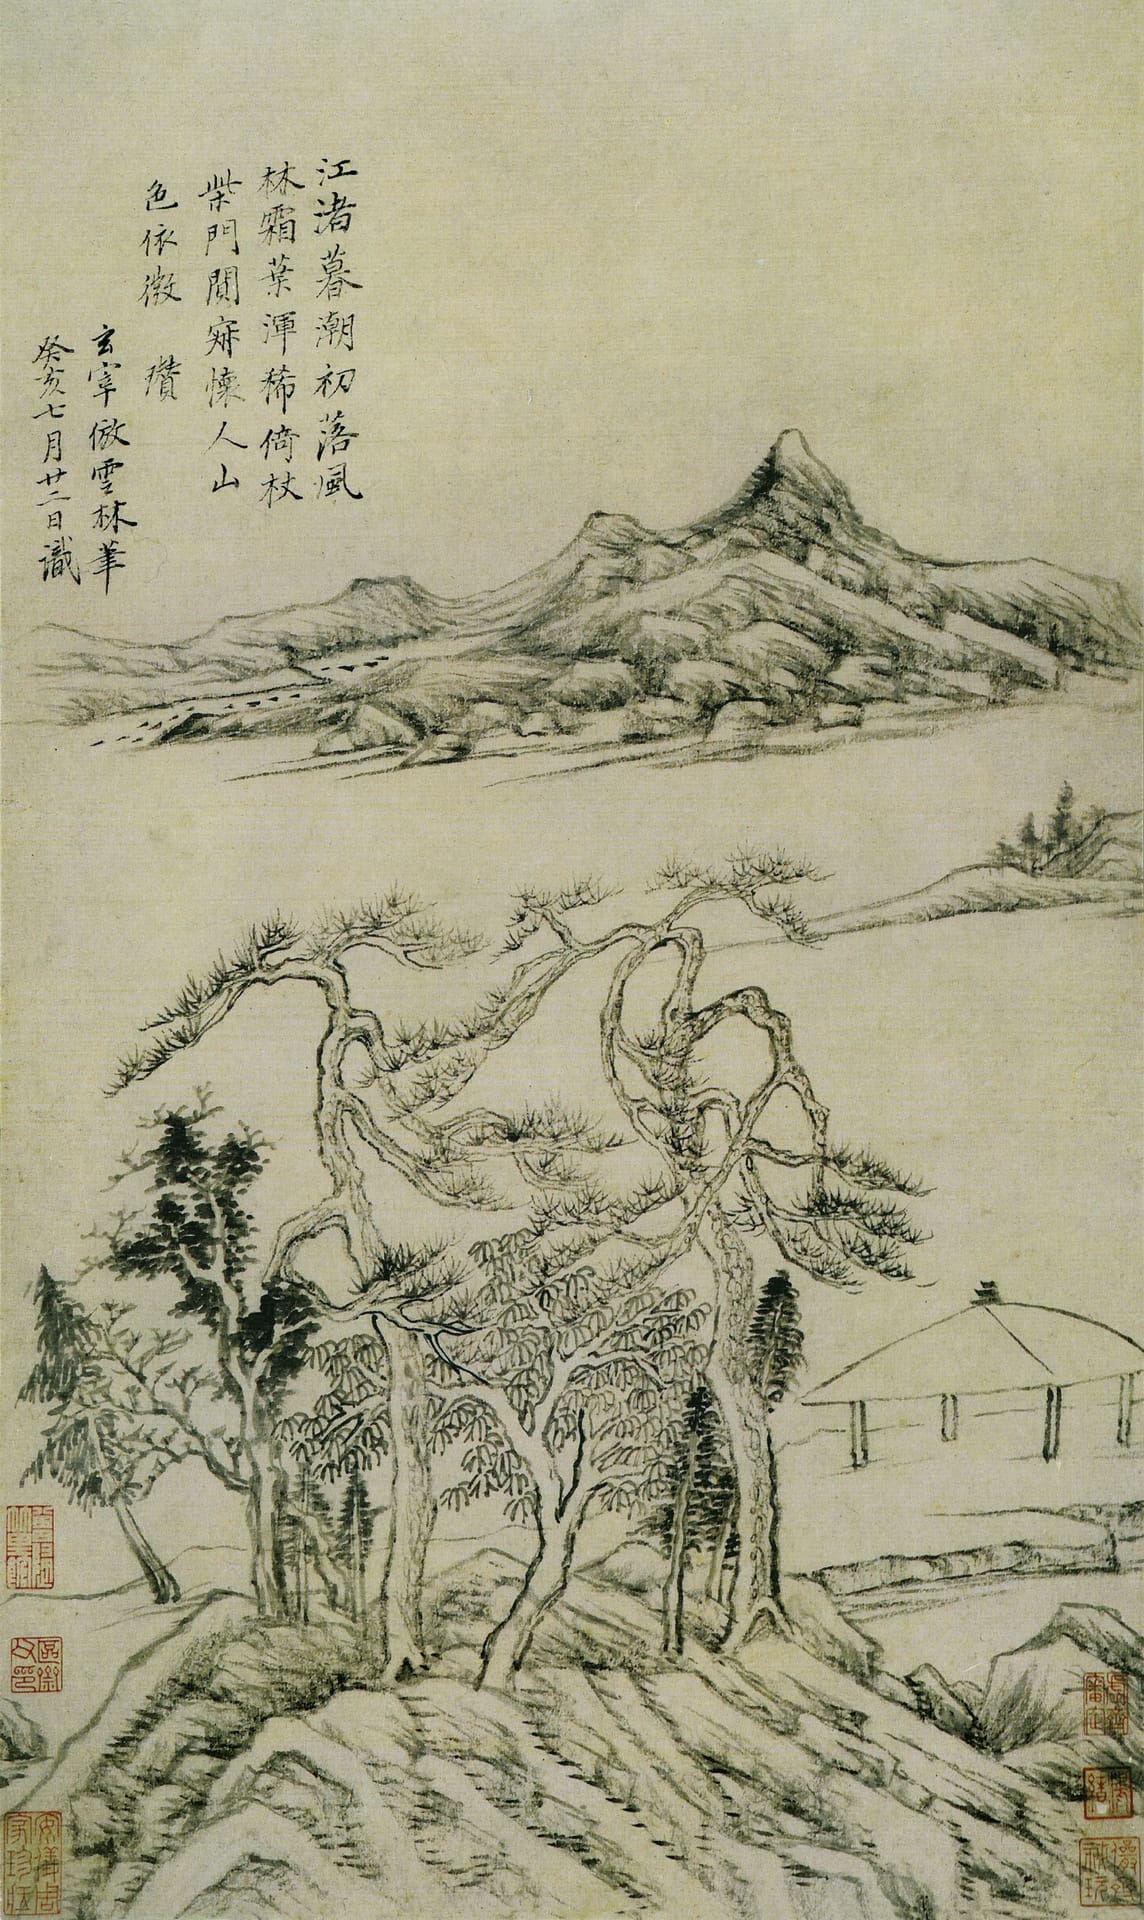 江渚暮潮初落風
林霜葉渾稀倚杖
柴門闃寂懷人山
色依微　瓚
玄宰倣雲林筆
癸亥七月廿二日識
安儀周
家珍藏